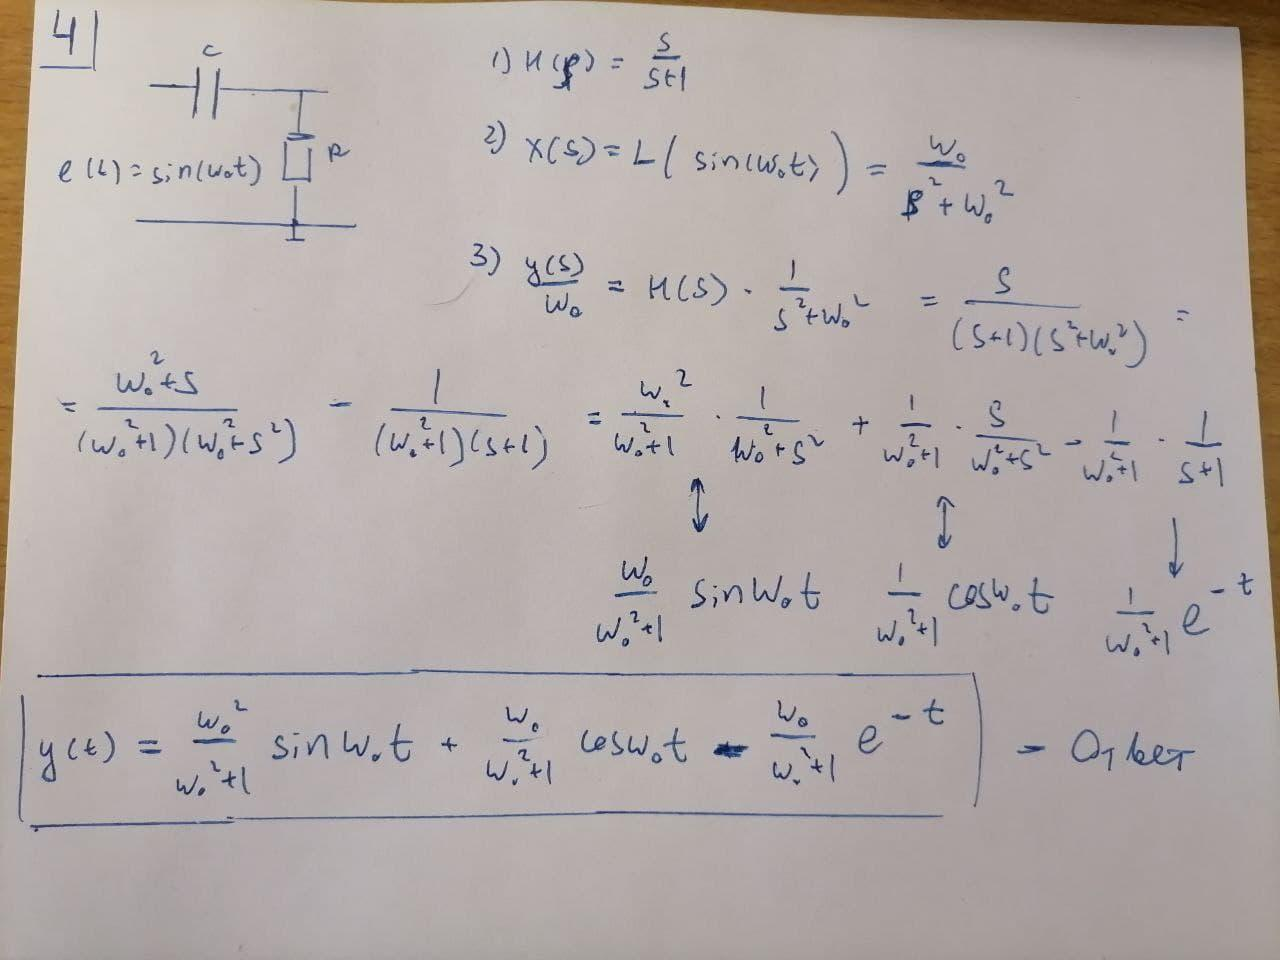 4
C
R
e(t) = sin(w₀t)
1) H(s) = s/(s+1)
2) X(s) = L(sin(w₀t)) = w₀/(s² + w₀²)
3) y(s)/w₀ = H(s) · 1/(s² + w₀²) = s/((s+1)(s² + w₀²)) =
= (w₀² + s)/((w₀² + 1)(w₀² + s²)) - 1/((w₀² + 1)(s+1)) = w₀²/(w₀² + 1) · 1/(w₀² + s²) + 1/(w₀² + 1) · s/(w₀² + s²) - 1/(w₀² + 1) · 1/(s+1)
↕ ↕ ↓
w₀/(w₀² + 1) sin w₀t 1/(w₀² + 1) cos w₀t 1/(w₀² + 1) e^(-t)
y(t) = w₀²/(w₀² + 1) sin w₀t + w₀/(w₀² + 1) cos w₀t - w₀/(w₀² + 1) e^(-t) - Ответ